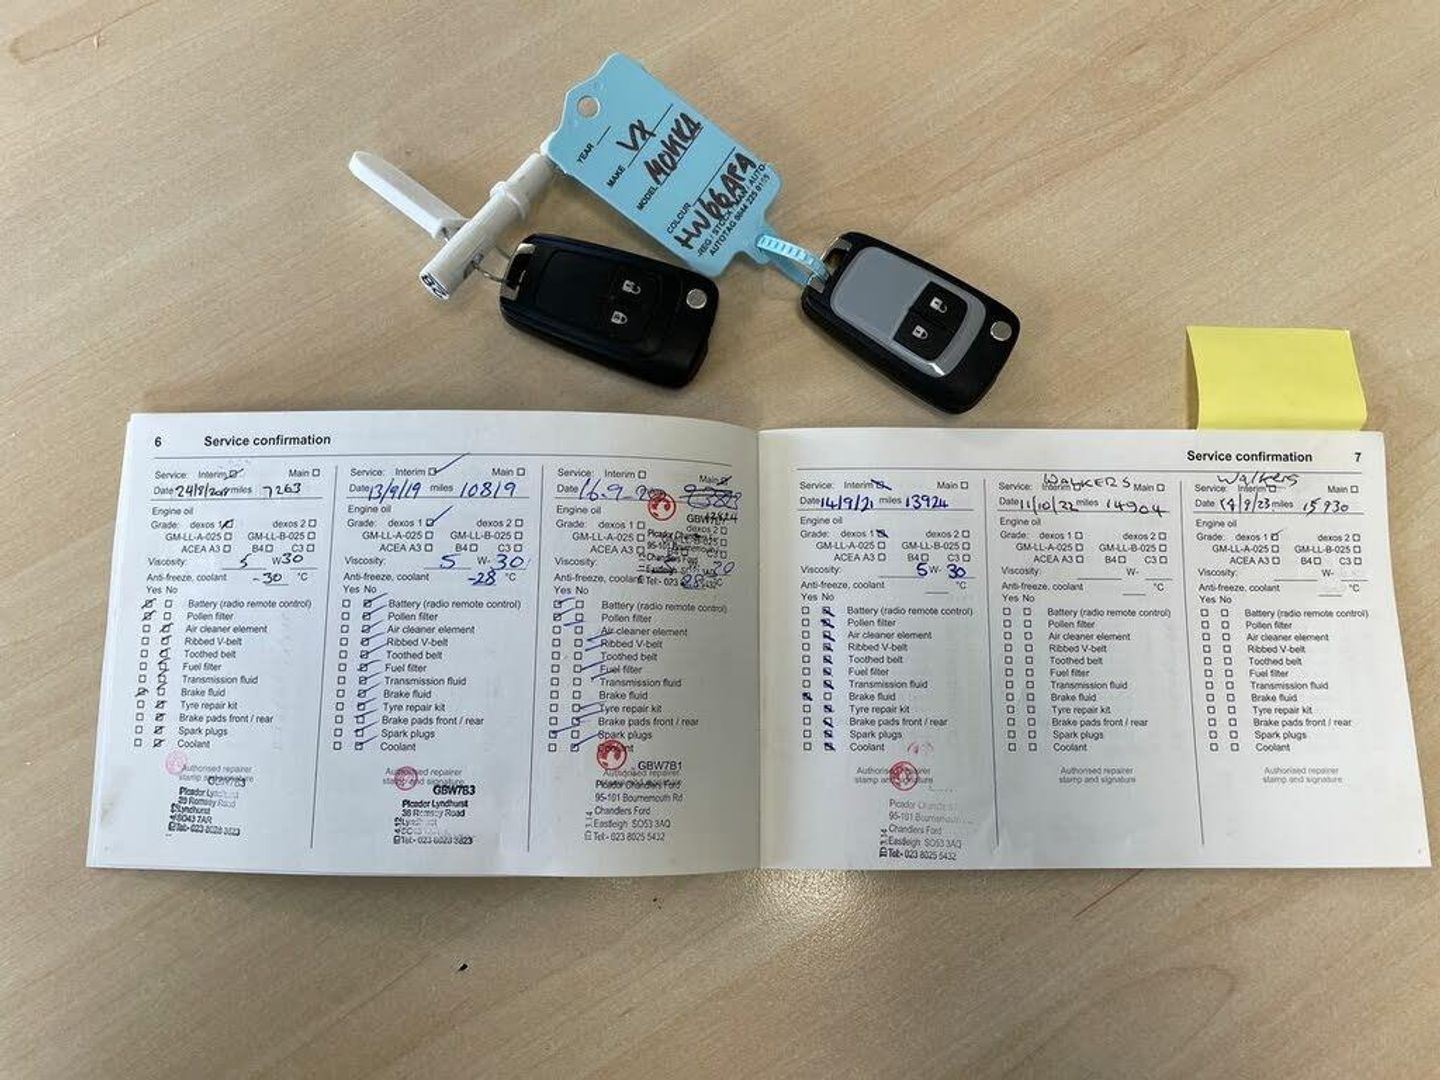 YEAR
MAKE VX
MODEL MOKKA
COLOUR
HW66AFA
REG / STOCK
AUTOTAG
28
6 Service confirmation
Service: Interim Main
Date 24/8/2018 miles 7263
Engine oil
Grade: dexos 1 dexos 2
GM-LL-A-025 GM-LL-B-025
ACEA A3 B4 C3
Viscosity: 5 W 30
Anti-freeze, coolant -30 °C
Yes No
Battery (radio remote control)
Pollen filter
Air cleaner element
Ribbed V-belt
Toothed belt
Fuel filter
Transmission fluid
Brake fluid
Tyre repair kit
Brake pads front / rear
Spark plugs
Coolant
Authorised repairer
stamp and signature
Picador Lyndhurst
Romsey Road
Lyndhurst
SO43 7AR
Tel:- 023 8028
Service: Interim Main
Date 13/9/19 miles 10819
Engine oil
Grade: dexos 1 dexos 2
GM-LL-A-025 GM-LL-B-025
ACEA A3 B4 C3
Viscosity: 5 W- 30
Anti-freeze, coolant -28 °C
Yes No
Battery (radio remote control)
Pollen filter
Air cleaner element
Ribbed V-belt
Toothed belt
Fuel filter
Transmission fluid
Brake fluid
Tyre repair kit
Brake pads front / rear
Spark plugs
Coolant
Authorised repairer
stamp and signature
GBW7B3
Picador Lyndhurst
Romsey Road
Lyndhurst
Service: Interim Main
Date 16.9.
GBW7B1
Engine oil
Grade: dexos 1 dexos 2
GM-LL-A-025
ACEA A3
Viscosity: 30
Anti-freeze, coolant
Yes No
Battery (radio remote control)
Pollen filter
Air cleaner element
Ribbed V-belt
Toothed belt
Fuel filter
Transmission fluid
Brake fluid
Tyre repair kit
Brake pads front / rear
Spark plugs
Coolant
GBW7B1
Authorised repairer
stamp and signature
Picador Chandlers Ford
95-101 Bournemouth Rd
Chandlers Ford
Eastleigh SO53 3AQ
Tel:- 023 8025 5432
Service confirmation 7
Service: Interim Main
Date 14/9/21 miles 13924
Engine oil
Grade: dexos 1 dexos 2
GM-LL-A-025 GM-LL-B-025
ACEA A3 B4 C3
Viscosity: 5 W- 30
Anti-freeze, coolant °C
Yes No
Battery (radio remote control)
Pollen filter
Air cleaner element
Ribbed V-belt
Toothed belt
Fuel filter
Transmission fluid
Brake fluid
Tyre repair kit
Brake pads front / rear
Spark plugs
Coolant
Authorised repairer
stamp and signature
Picador
95-101 Bournemouth
Chandlers Ford
Eastleigh SO53 3AQ
Tel:- 023 8025 5432
WALKERS
Service: Interim Main
Date 11/10/22 miles 14904
Engine oil
Grade: dexos 1 dexos 2
GM-LL-A-025 GM-LL-B-025
ACEA A3 B4 C3
Viscosity: W-
Anti-freeze, coolant °C
Yes No
Battery (radio remote control)
Pollen filter
Air cleaner element
Ribbed V-belt
Toothed belt
Fuel filter
Transmission fluid
Brake fluid
Tyre repair kit
Brake pads front / rear
Spark plugs
Coolant
Authorised repairer
stamp and signature
Walkers
Service: Interim Main
Date 14/9/23 miles 15930
Engine oil
Grade: dexos 1 dexos 2
GM-LL-A-025 GM-LL-B-025
ACEA A3 B4 C3
Viscosity: W-
Anti-freeze, coolant °C
Yes No
Battery (radio remote control)
Pollen filter
Air cleaner element
Ribbed V-belt
Toothed belt
Fuel filter
Transmission fluid
Brake fluid
Tyre repair kit
Brake pads front / rear
Spark plugs
Coolant
Authorised repairer
stamp and signature